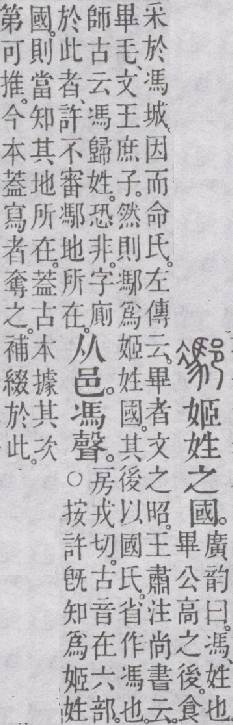 姬姓之國。廣韵曰。馮、姓也
畢公高之後。食
采於馮城、因而命氏。左傳云、畢者文之昭。王肅注尚書云、
畢毛、文王庶子。然則爲姬姓國。其後以國氏。省作馮也。
師古云馮歸姓。恐非。字廟
於此者、許不審地所在。
从邑。馮聲。○房戎切。古音在六部。
按許旣知爲姬姓
國。則當知其地所在。蓋古本據其次
第可推。今本蓋寫者奪之。補綴於此。